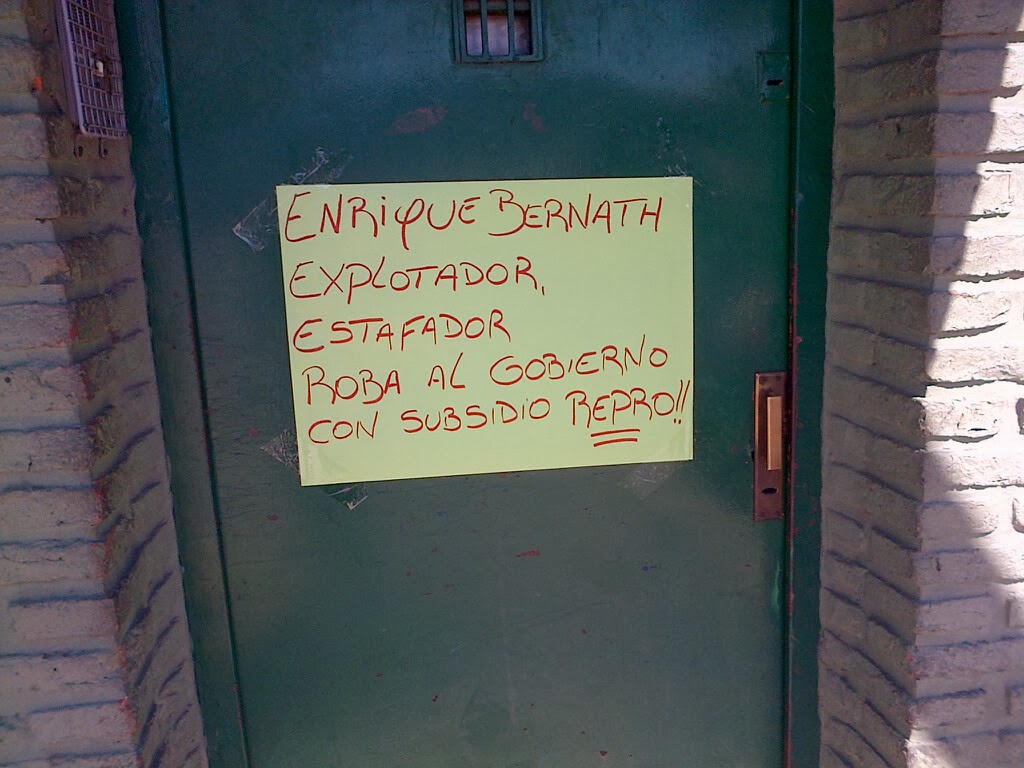 ENRIQUE BERNATH
EXPLOTADOR,
ESTAFADOR
ROBA AL GOBIERNO
CON SUBSIDIO REPRO!!